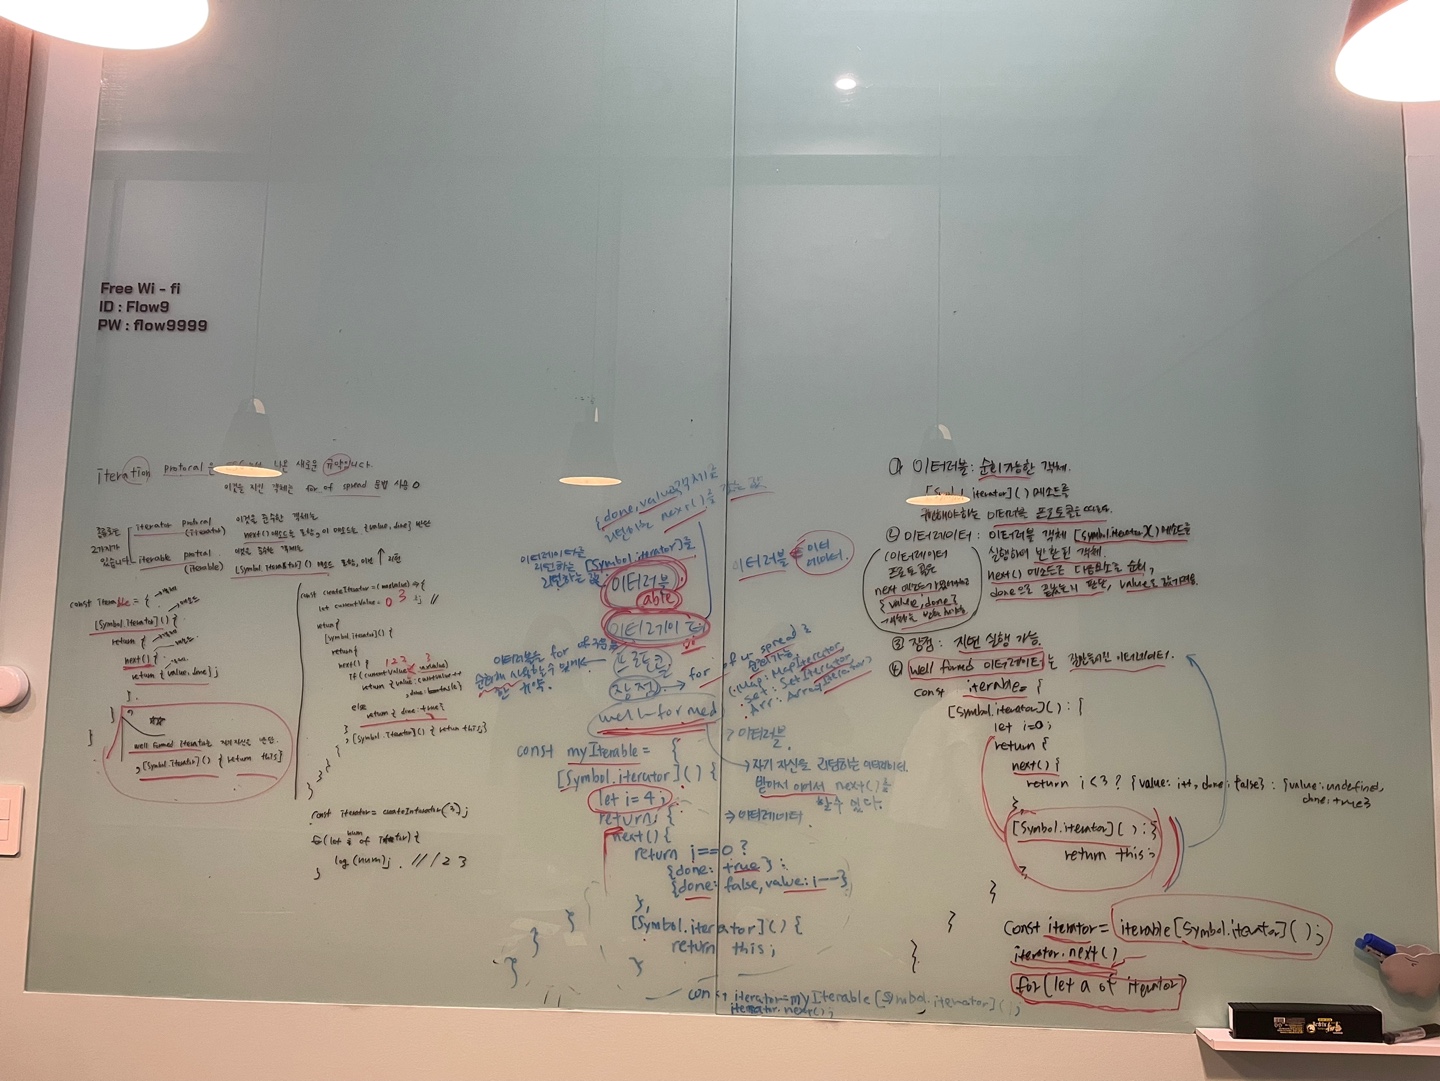 Free Wi - fi
ID : Flow9
PW : flow9999
iteration protocal은 나온 새로운 규약입니다.
이것을 지킨 객체는 for of spread 문법 사용 O
종류로는
2가지가
있습니다
iterator protocal
(iterator)
이것을 준수한 객체는
next() 메소드를 포함, 이 메소드는 {value, done} 반환
iterable
(iterable)
이것을 준수한 객체는
[Symbol.iterator]() 메소드 포함,
const iterable = {
[Symbol.iterator]() {
return {
next() {
return {value, done};
}
}
}
well formed iterator는 자기자신을 반환.
, [Symbol.iterator]() { return this}
const createIterator = (maxValue) => {
let currentValue = 0 3 ; //
return {
[Symbol.iterator]() {
return {
next() { 1 2 3 3
if (currentValue < maxValue)
return {value: currentValue++
, done: boolean}
else
return { done: true}
}, [Symbol.iterator]() { return this;}
}
}
}
const iterator = createInterator(3);
for(let num of iterator) {
log(num); // 1 2 3
}
{done, value} 객체를
리턴하는 next()를 갖는 값
이터레이터를
리턴하는 [Symbol.iterator]()를
이터러블
able
이터레이터
프로토콜
장점 → for of 나 spread로
순회가능
(Map: MapIterator,
Set: SetIterator
Arr: ArrayIterator)
이터러블을 for of
한 규약.
well-formed
이터러블 = 이터레이터.
> 이터러블
→ 자기 자신을 리턴하는 이터레이터.
받아서 이어서 next()를
할수 있다.
→ 이터레이터
const myIterable = {
[Symbol.iterator]() {
let i=4;
return {
next() {
return i==0 ?
{done: true} :
{done: false, value: i--}
},
[Symbol.iterator]() {
return this;
}
}
}
}
const iterator=myIterable[Symbol.iterator]();
iterator.next();
① 이터러블 : 순회가능한 객체.
[Symbol.iterator]() 메소드를
구현해야하는 이터러블 프로토콜을 따른다.
② 이터레이터 : 이터러블 객체 [Symbol.iterator]() 메소드를
실행하여 반환된 객체.
next() 메소드로 다음요소로 순회,
done으로 끝났는지 판단, value로 값가져옴.
(이터레이터
프로토콜은
{value, done}
③ 장점 : 지연 실행 가능
④ well fomed 이터레이터는
const iterable = {
[Symbol.iterator]() : {
let i=0;
return {
next() {
return i<3 ? {value: i++, done: false} : {value: undefined,
done: true}
},
[Symbol.iterator]() : {
return this;
}
}
}
}
const iterator = iterable[Symbol.iterator]();
iterator.next()
for(let a of iterator)